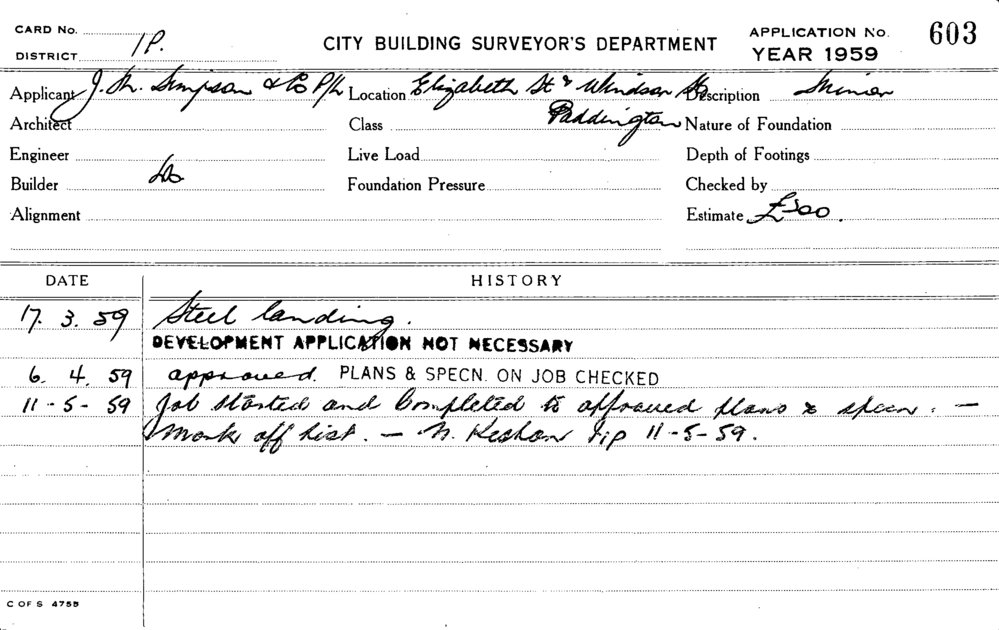 CARD No. APPLICATION No. 603
DISTRICT 1P. CITY BUILDING SURVEYOR'S DEPARTMENT YEAR 1959
Applicant J. M. Simpson & Co P/L Location Elizabeth St & Windsor St Description Minor
Architect Class Paddington Nature of Foundation
Engineer Live Load Depth of Footings
Builder Do Foundation Pressure Checked by
Alignment Estimate £500.
DATE HISTORY
17. 3. 59 Steel landing.
DEVELOPMENT APPLICATION NOT NECESSARY
6. 4. 59 approved. PLANS & SPECN. ON JOB CHECKED
11-5-59 Job started and Completed to approved plans & specn. —
Mark off list. — 11-5-59.
C OF S 4755